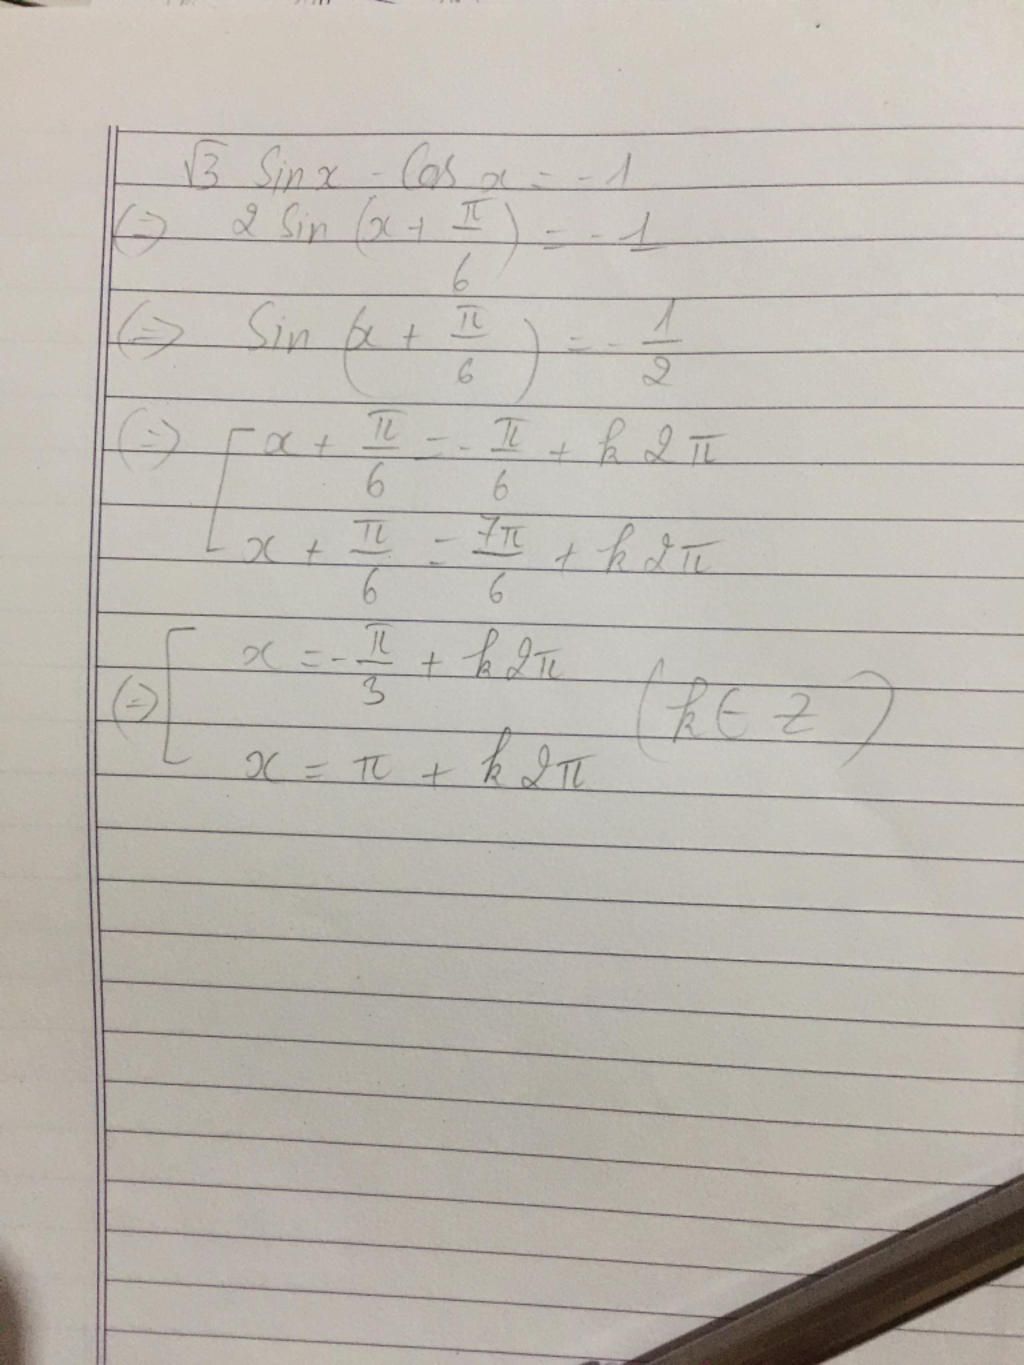 √3 Sin x - Cos x = -1
(=) 2 Sin (x + π/6) = -1
(=) Sin (x + π/6) = -1/2
(=) [ x + π/6 = -π/6 + k2π
x + π/6 = 7π/6 + k2π
(=) [ x = -π/3 + k2π
(k ∈ Z)
x = π + k2π